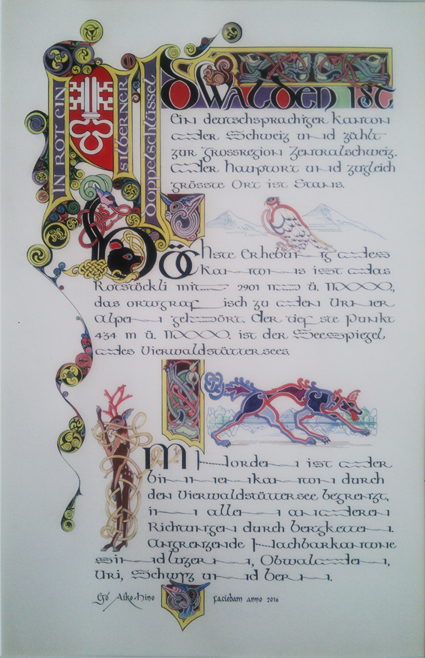 IN ROT EIN
SILBERNER
DOPPELSCHLÜSSEL
NIDWALDEN IST
Ein deutschsprachiger Kanton
der Schweiz und zählt
zur Grossregion Zentralschweiz.
Der Hauptort und zugleich
grösste Ort ist Stans.
Höchste Erhebung des
Kantons ist das
Rotstöckli mit 2901 m ü. M
das ortografisch zu den Urner
Alpen gehört. Der tiefste Punkt
434 m ü. M. ist der Seespiegel
des Vierwaldstättersees
Im Norden ist der
Binnenkanton durch
den Vierwaldstättersee begrenzt,
in allen anderen
Richtungen durch Bergketten.
Angrenzende Nachbarkantone
sind Luzern, Obwalden,
Uri, Schwyz und Bern.
Aiko Hine faciebam anno 2016